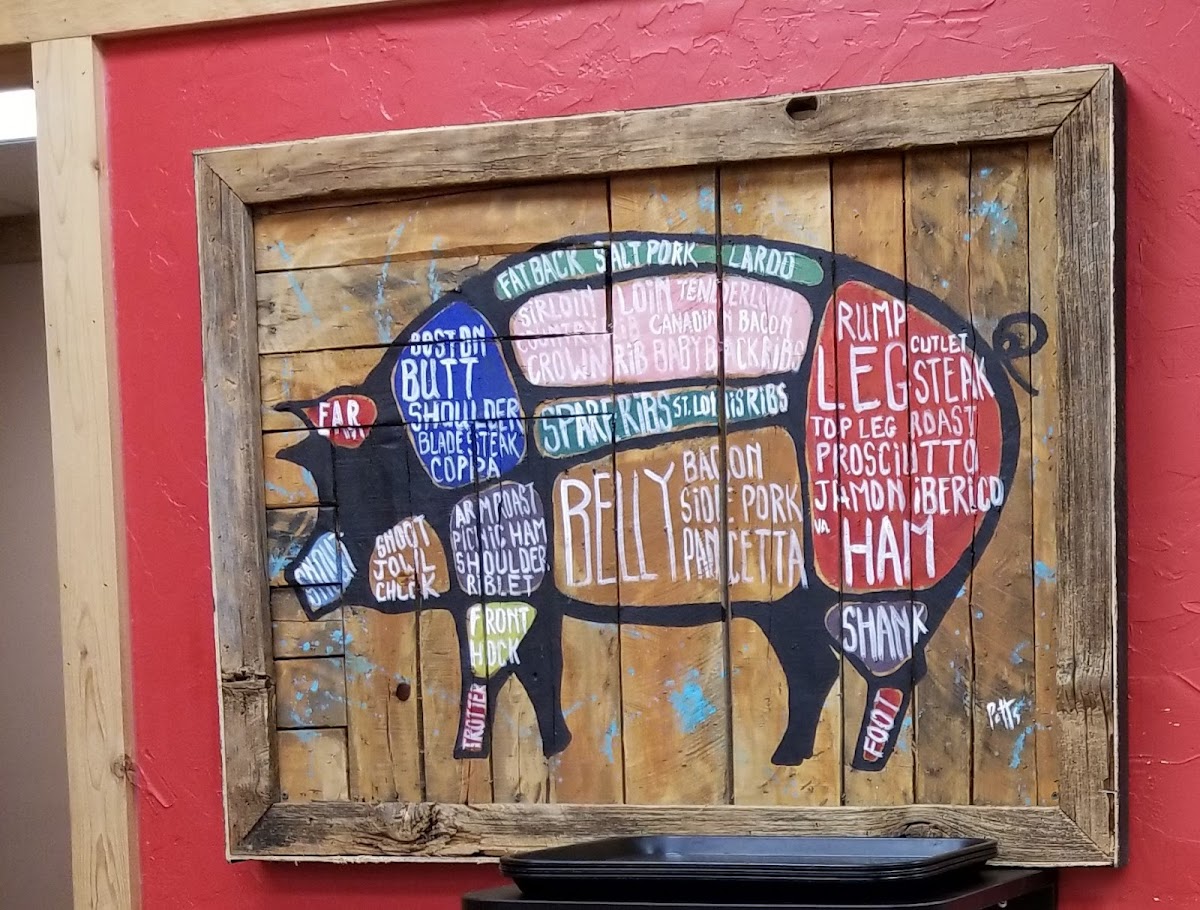 FATBACK SALT PORK LARDO
SIRLOIN LOIN TENDERLOIN
COUNTRY RIB CANADIAN BACON
CROWN RIB BABY BACK RIBS
SPARE RIBS ST. LOUIS RIBS
BOSTON
BUTT
SHOULDER
BLADE STEAK
COPPA
EAR
SNOUT
SNOOT
JOWL
CHEEK
ARM ROAST
PICNIC HAM
SHOULDER
RIBLET
FRONT
HOCK
TROTTER
BELLY
BACON
SIDE PORK
PANCETTA
RUMP
CUTLET
LEG STEAK
TOP LEG ROAST
PROSCIUTTO
JAMON IBERICO
VA
HAM
SHANK
FOOT
Potts